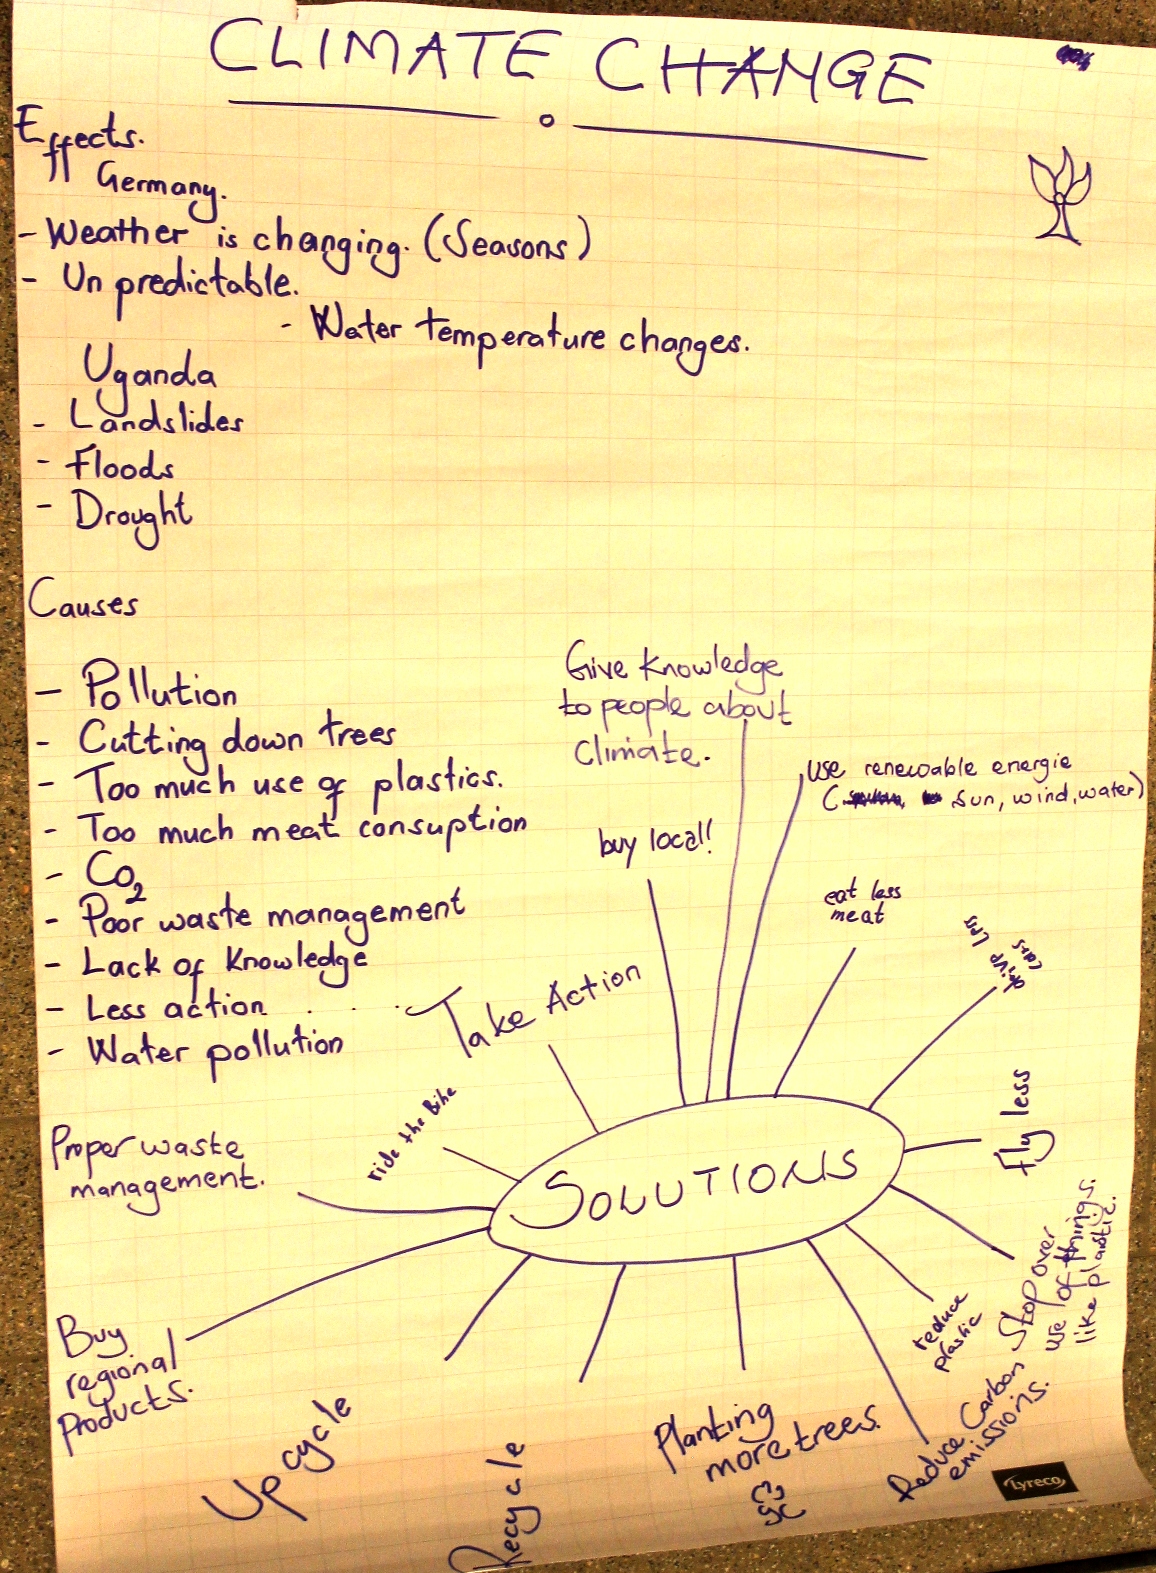 CLIMATE CHANGE
Effects.
Germany.
- Weather is changing. (Seasons)
- Un predictable.
- Water temperature changes.
Uganda
- Landslides
- Floods
- Drought
Causes
- Pollution
- Cutting down trees
- Too much use of plastics.
- Too much meat consuption
- CO2
- Poor waste management
- Lack of Knowledge
- Less action
- Water pollution
SOLUTIONS
Proper waste
management.
ride the Bike
Take Action
buy local!
Give Knowledge
to people about
Climate.
Use renewable energie
(sun, wind, water)
eat less
meat
drive less
cars
Fly less
Stop over
use of things.
like plastic.
reduce
plastic
Reduce Carbon
emissions.
Planting
more trees.
Recycle
Upcycle
Buy
regional
Products.
Lyreco